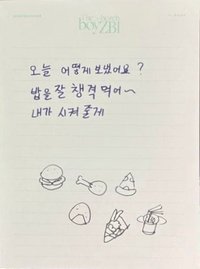 boyZB1
오늘 어떻게 보냈어요?
밥을 잘 챙격 먹어~
내가 시켜 줄게